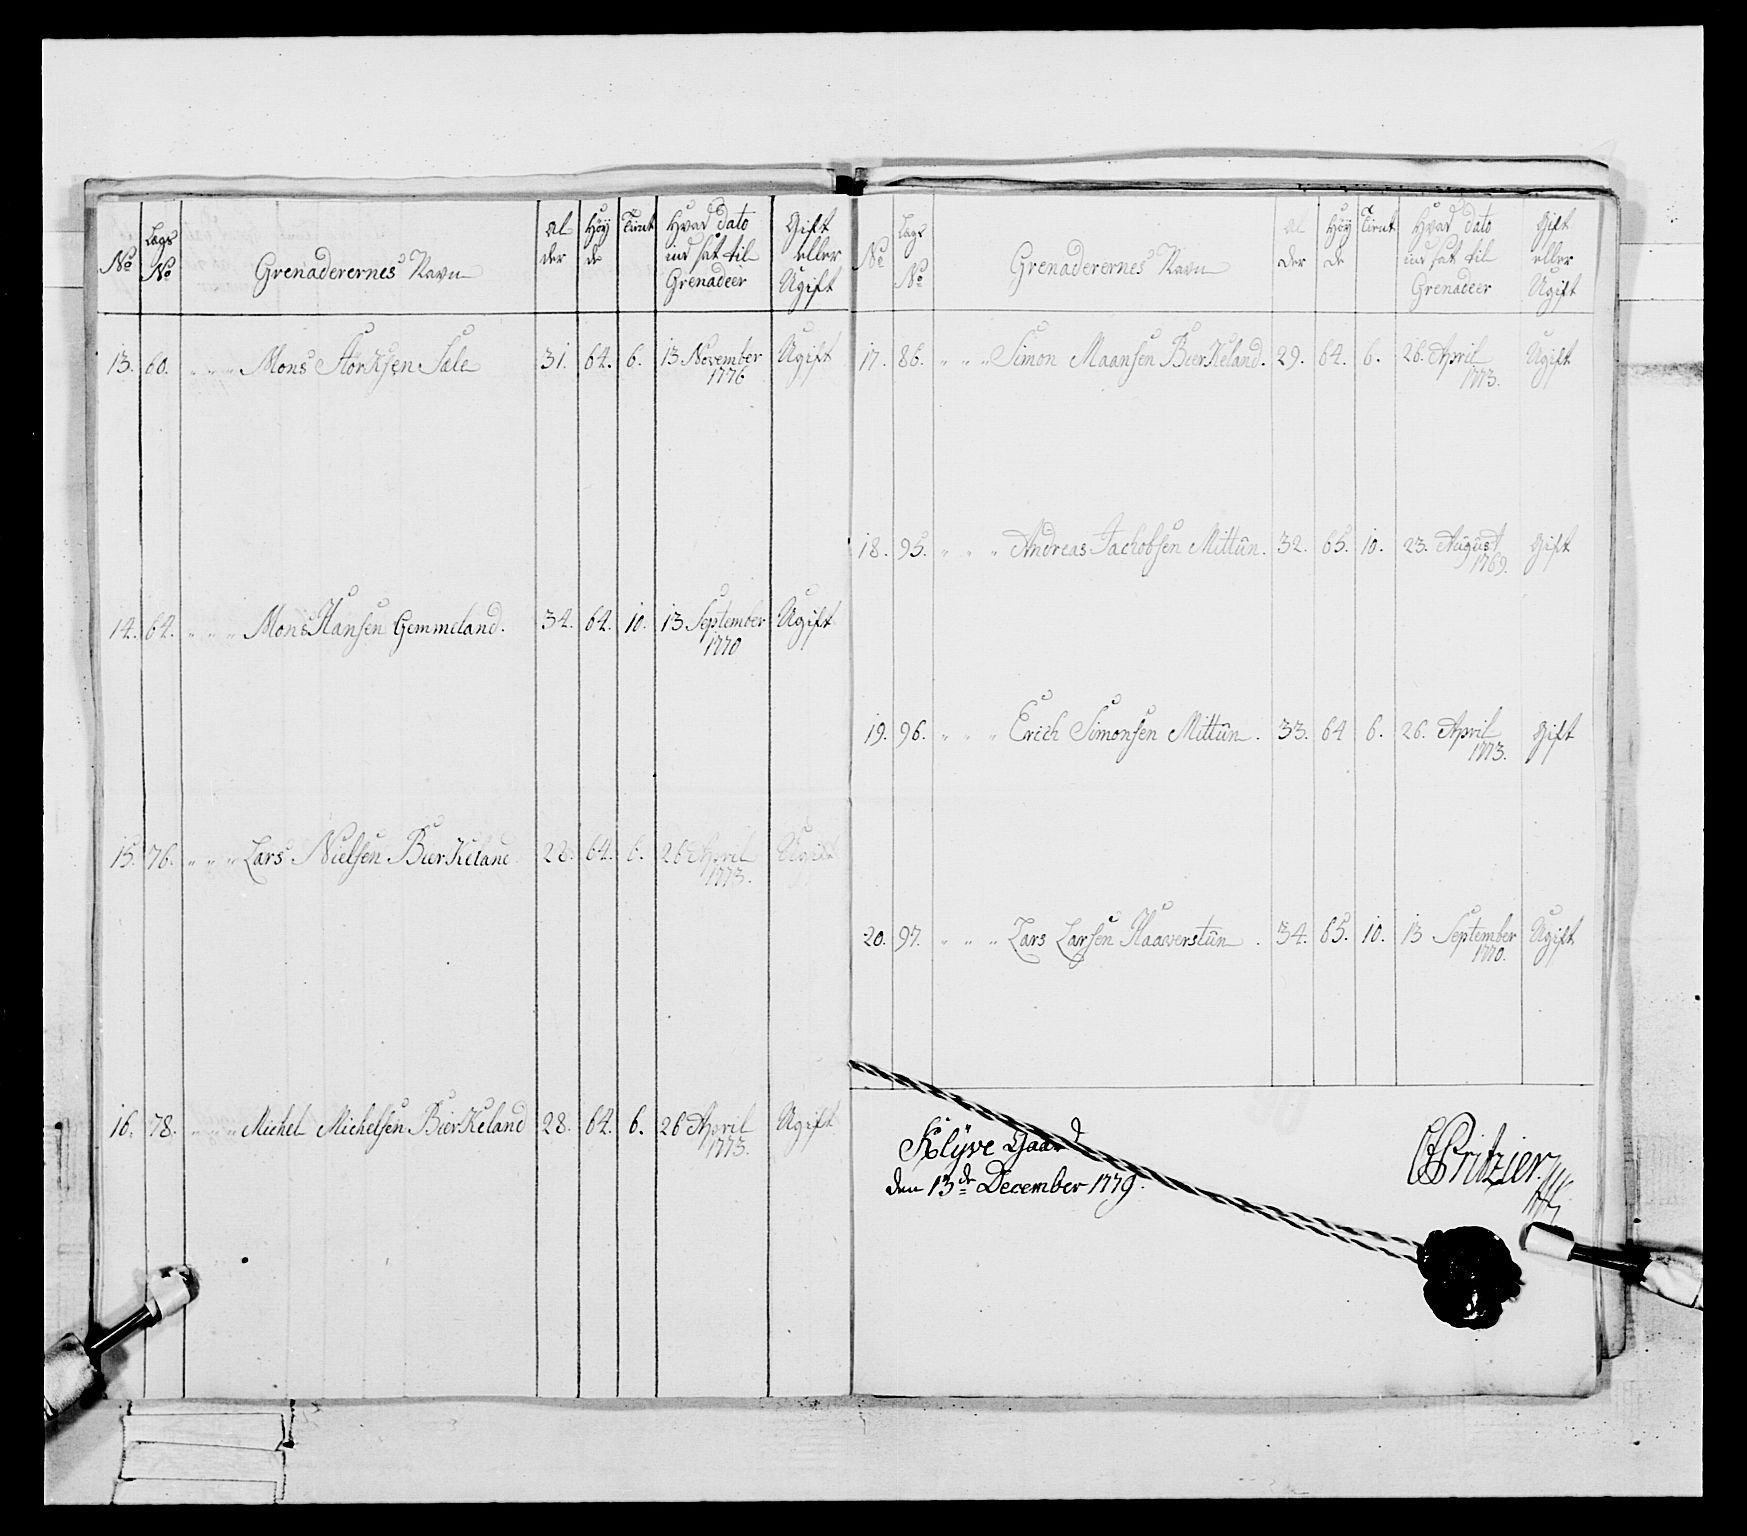 No
Lags No
Grenaderernes Navn
Al der
Höy de
Tient
Hvad dato ind sat til Grenadeer
Gift eller Ugift
13. 60. " " " Mons Störksen Sale 31. 64. 6. 13 November 1776 Ugift
14. 64. " " " Mons Hansen Gemmeland. 34. 64. 10. 13 September 1770 Ugift
15. 76. " " " Lars Nielsen BierKeland 28. 64. 6. 26 April 1773. Ugift
16. 78. " " " Michel Michelsen BierKeland 28. 64. 6. 26 April 1773. Ugift
No
Lags No
Grenaderernes Navn
Al der
Höy de
Tient
Hvad dato ind sat til Grenadeer
Gift eller Ugift
17. 86. " " " Simon Maansen BierKeland. 29. 64. 6. 26. April 1773. Ugift
18. 95. " " " Andreas Jachobsen Mittun. 32. 65. 10. 23. August 1769. Gift
19. 96. " " " Erich Simonsen Mittun. 33. 64 6. 26. April 1773. Gift
20. 97. " " " Lars Larsen Haaverstun. 34. 65. 10. 13 September 1770. Ugift
Klÿve Gaard
den 13de December 1779.
Pritzier